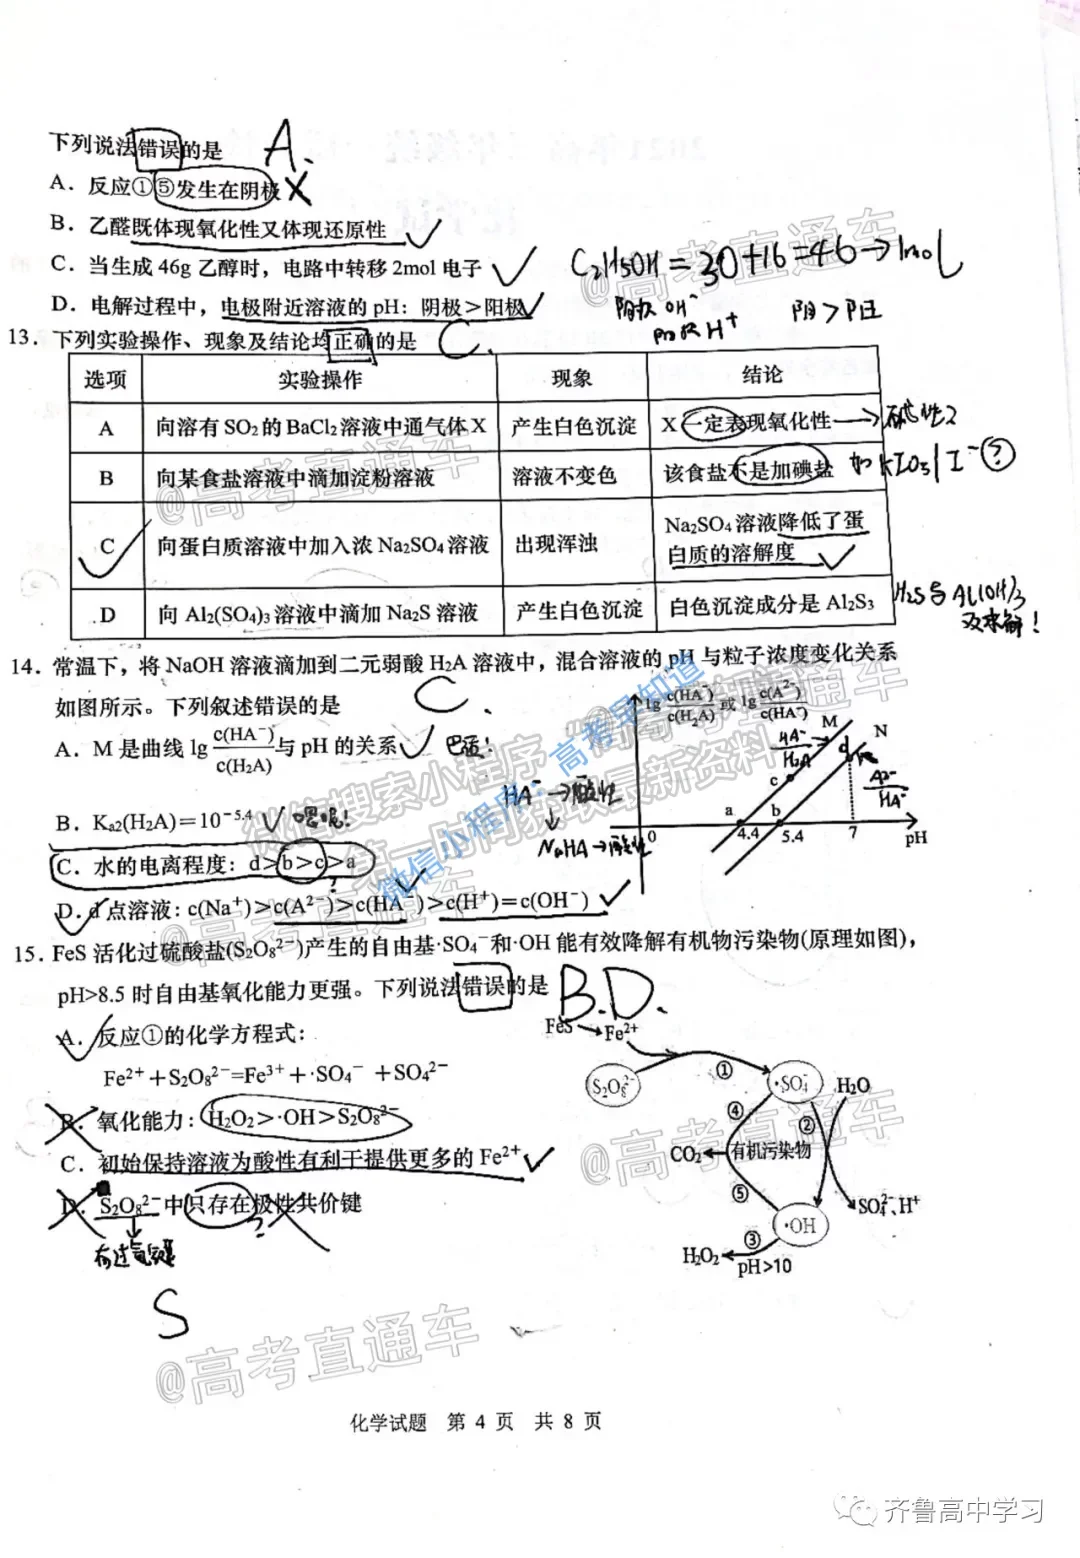 下列说法错误的是 A.
A．反应①⑤发生在阴极 ×
B．乙醛既体现氧化性又体现还原性 √
C．当生成46g乙醇时，电路中转移2mol电子 √ C₂H₅OH=30+16=46→1mol
D．电解过程中，电极附近溶液的pH：阴极＞阳极 √ 阴极OH⁻ 阳极H⁺ 阴＞阳
13．下列实验操作、现象及结论均正确的是 C.
选项 实验操作 现象 结论
A 向溶有SO₂的BaCl₂溶液中通气体X 产生白色沉淀 X一定表现氧化性 → 碱性?
B 向某食盐溶液中滴加淀粉溶液 溶液不变色 该食盐不是加碘盐 如KIO₃/I⁻?
C 向蛋白质溶液中加入浓Na₂SO₄溶液 出现浑浊 Na₂SO₄溶液降低了蛋
白质的溶解度 √
D 向Al₂(SO₄)₃溶液中滴加Na₂S溶液 产生白色沉淀 白色沉淀成分是Al₂S₃ H₂S与Al(OH)₃
双水解！
14．常温下，将NaOH溶液滴加到二元弱酸H₂A溶液中，混合溶液的pH与粒子浓度变化关系
如图所示。下列叙述错误的是 C.
A．M是曲线lg c(HA⁻)/c(H₂A) 与pH的关系 √
B．Kₐ₂(H₂A)=10⁻⁵·⁴ √
C．水的电离程度：d>b>c>a
D．d点溶液：c(Na⁺)>c(A²⁻)>c(HA⁻)>c(H⁺)=c(OH⁻) √
HA⁻→酸性
NaHA→酸性
lg c(HA⁻)/c(H₂A) 或 lg c(A²⁻)/c(HA⁻)
M
N
HA⁻/H₂A
A²⁻/HA⁻
d
c
a
b
0 4.4 5.4 7 pH
15．FeS活化过硫酸盐(S₂O₈²⁻)产生的自由基·SO₄⁻和·OH能有效降解有机物污染物(原理如图)，
pH>8.5时自由基氧化能力更强。下列说法错误的是 B.D.
A．反应①的化学方程式：
Fe²⁺+S₂O₈²⁻=Fe³⁺+·SO₄⁻+SO₄²⁻
B．氧化能力：H₂O₂>·OH>S₂O₈²⁻
C．初始保持溶液为酸性有利于提供更多的Fe²⁺ √
D．S₂O₈²⁻中只存在极性共价键
有过氧键
S
FeS Fe²⁺
S₂O₈²⁻ ① ·SO₄⁻ H₂O
④ ②
CO₂ 有机污染物
⑤ SO₄²⁻、H⁺
·OH
H₂O₂ ③
pH>10
@高考直通车
@高考直通车
@高考直通车
@高考直通车
@高考直通车
微信搜索小程序“高考早知道”
第一时间获取最新资料
微信小程序：高考早知道
化学试题 第 4 页 共 8 页
齐鲁高中学习